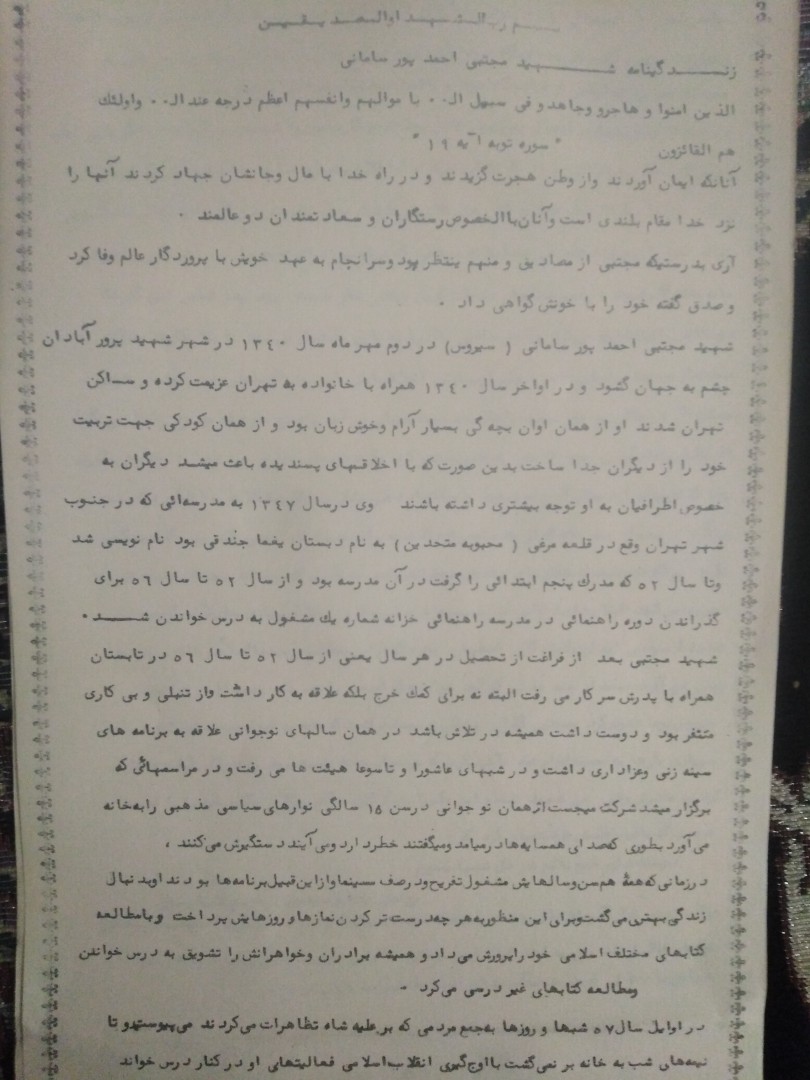 بسم رب الشهدا و الصدیقین
زندگینامه شهید مجتبی احمد پور سامانی
الذین امنوا و هاجرو وجاهد و فی سبیل ال٠٠ با موالهم وانفسهم اعظم درجه عند ال٠٠ واولئك
هم الفائزون " سوره توبه آیه ١٩ "
آنانکه ایمان آوردند واز وطن هجرت گزیدند و در راه خدا با مال وجانشان جهاد کردند آنها را
نزد خدا مقام بلندی است وآنان باالخصوص رستگاران و سعادتمندان دو عالمند ٠
آری بدرستیکه مجتبی از مصادیق و منهم ینتظر بود وسرانجام به عهد خویش با پروردگار عالم وفا کرد
و صدق گفته خود را با خونش گواهی داد ٠
شهید مجتبی احمد پور سامانی ( سیروس) در دوم مهر ماه سال ١٣٤٠ در شهر شهید پرور آبادان
چشم به جهان گشود و در اواخر سال ١٣٤٠ همراه با خانواده به تهران عزیمت کرده و ساکن
تهران شدند او از همان اوان بچه گی بسیار آرام وخوش زبان بود و از همان کودکی جهت تربیت
خود را از دیگران جدا ساخت بدین صورت که با اخلاقهای پسندیده باعث میشد دیگران به
خصوص اطرافیان به او توجه بیشتری داشته باشند وی درسال ١٣٤٧ به مدرسه‌ائی که در جنوب
شهر تهران وقع در قلعه مرغی ( محبوبه متحدین ) به نام دبستان یغما جندقی بود نام نویسی شد
وتا سال ٥٢ که مدرك پنجم ابتدائی را گرفت در آن مدرسه بود و از سال ٥٢ تا سال ٥٦ برای
گذراندن دوره راهنمائی در مدرسه راهنمائی خزانه شماره یك مشغول به درس خواندن شد ٠
شهید مجتبی بعد از فراغت از تحصیل در هر سال یعنی از سال ٥٢ تا سال ٥٦ در تابستان
همراه با پدرش سر کار می رفت البته نه برای کمك خرج بلکه علاقه به کار داشت واز تنبلی و بی کاری
متنفر بود و دوست داشت همیشه در تلاش باشد در همان سالهای نوجوانی علاقه به برنامه های
سینه زنی وعزاداری داشت و در شبهای عاشورا و تاسوعا هیئت ها می رفت و در مراسمهائی که
برگزار میشد شرکت میجست ازهمان نو جوانی درسن ١٥ سالگی نوارهای سیاسی مذهبی رابه خانه
می آورد بطوری که صدای همسایه ها درمیامد ومیگفتند خطر دارد ومی آیند دستگیرش می کنند ،
درزمانی که همهٔ هم سن و سالهایش مشغول تفریح ودر صف سینما وازاین قبیل برنامه ها بودند اوبدنبال
زندگی بهتری می گشت وبرای این منظور به هر چه درست تر کردن نمازها و روزهایش پرداخت وبا مطالعه
کتابهای مختلف اسلامی خود را پرورش می داد و همیشه برادران وخواهرانش را تشویق به درس خواندن
ومطالعه کتابهای غیر درسی می کرد ٠
در اوایل سال ٥٧ شبها و روزها به جمع مردمی که بر علیه شاه تظاهرات می کردند می پیوست و تا
نیمه های شب به خانه بر نمی گشت با اوج گیری انقلاب اسلامی فعالیتهای او در کنار درس خواند